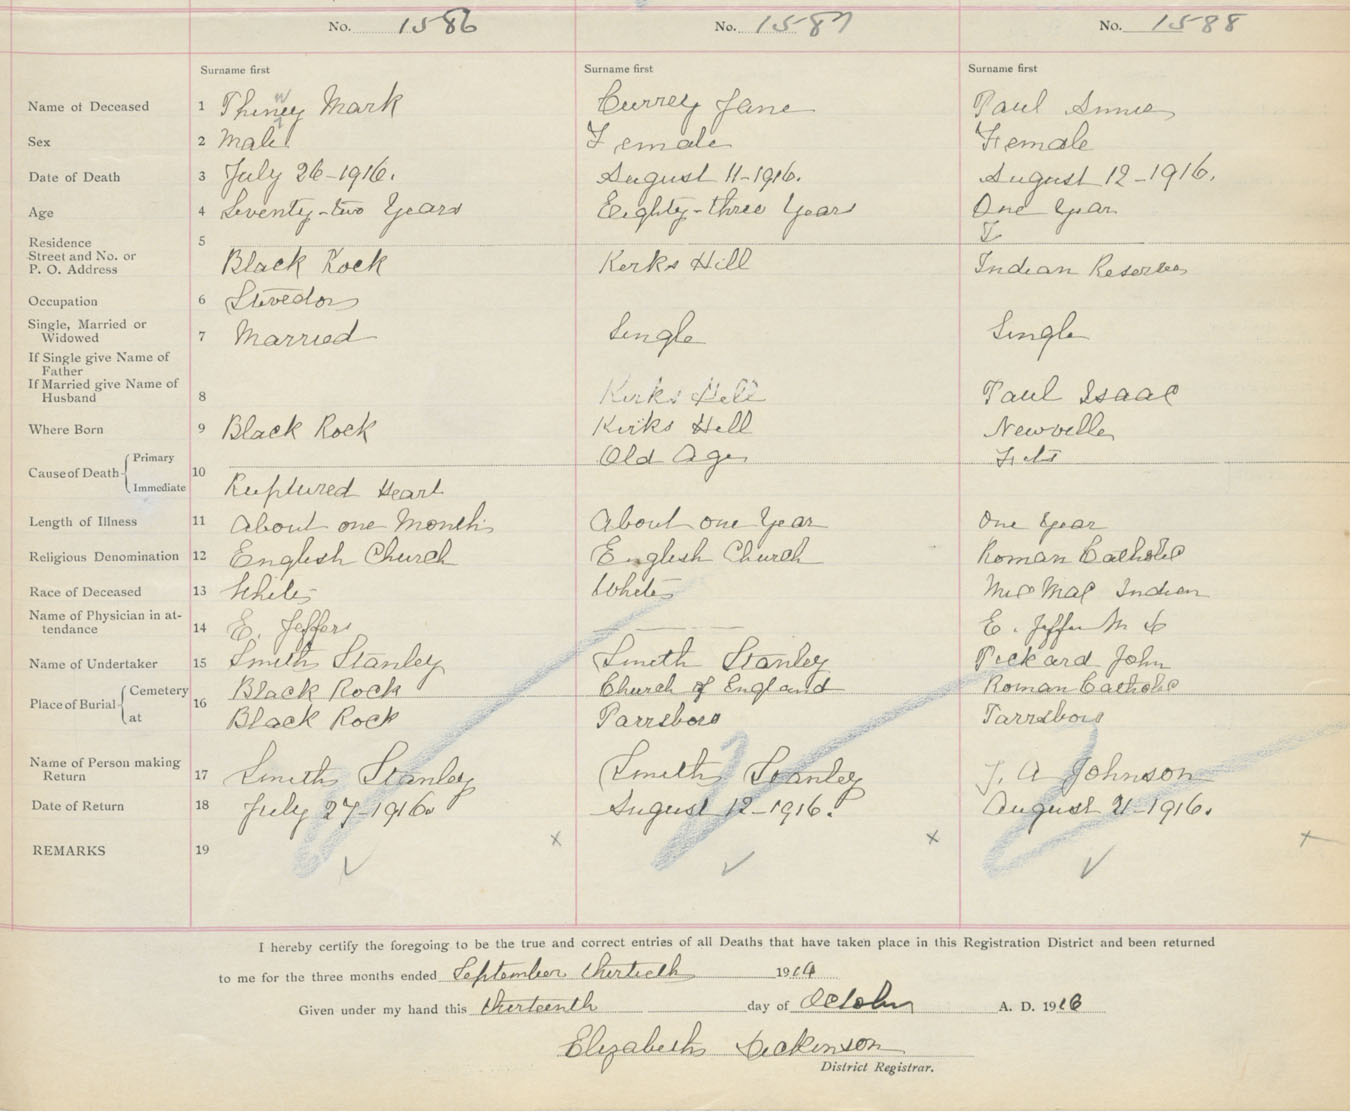 No. 1586 No. 1587 No. 1588
Surname first Surname first Surname first
Name of Deceased 1 Thiney Mark Currey Jane Paul Annie
Sex 2 Male Female Female
Date of Death 3 July 26-1916. August 11-1916. August 12-1916.
Age 4 Seventy-two Years Eighty-three Years One Year
Residence 5
Street and No. or
P. O. Address Black Rock Kirks Hill Indian Reserve
Occupation 6 Stevedor
Single, Married or
Widowed 7 Married Single Single
If Single give Name of
Father
If Married give Name of
Husband 8 Kirks Hill Paul Isaac
Where Born 9 Black Rock Kirks Hill Newville
Cause of Death Primary 10 Old Age Fits
Immediate Ruptured Heart
Length of Illness 11 About one Month About one Year One Year
Religious Denomination 12 English Church English Church Roman Catholic
Race of Deceased 13 White White Mic Mac Indian
Name of Physician in at-
tendance 14 E. Jeffers E. Jeffers M D
Name of Undertaker 15 Smith Stanley Smith Stanley Pickard John
Place of Burial Cemetery 16 Black Rock Church of England Roman Catholic
at Black Rock Parrsboro Parrsboro
Name of Person making
Return 17 Smith Stanley Smith Stanley J. A Johnson
Date of Return 18 July 27-1916. August 12-1916. August 21-1916.
REMARKS 19
I hereby certify the foregoing to be the true and correct entries of all Deaths that have taken place in this Registration District and been returned
to me for the three months ended September thirtieth 1916
Given under my hand this thirteenth day of October A. D. 1916
Elizabeth Dickinson
District Registrar.